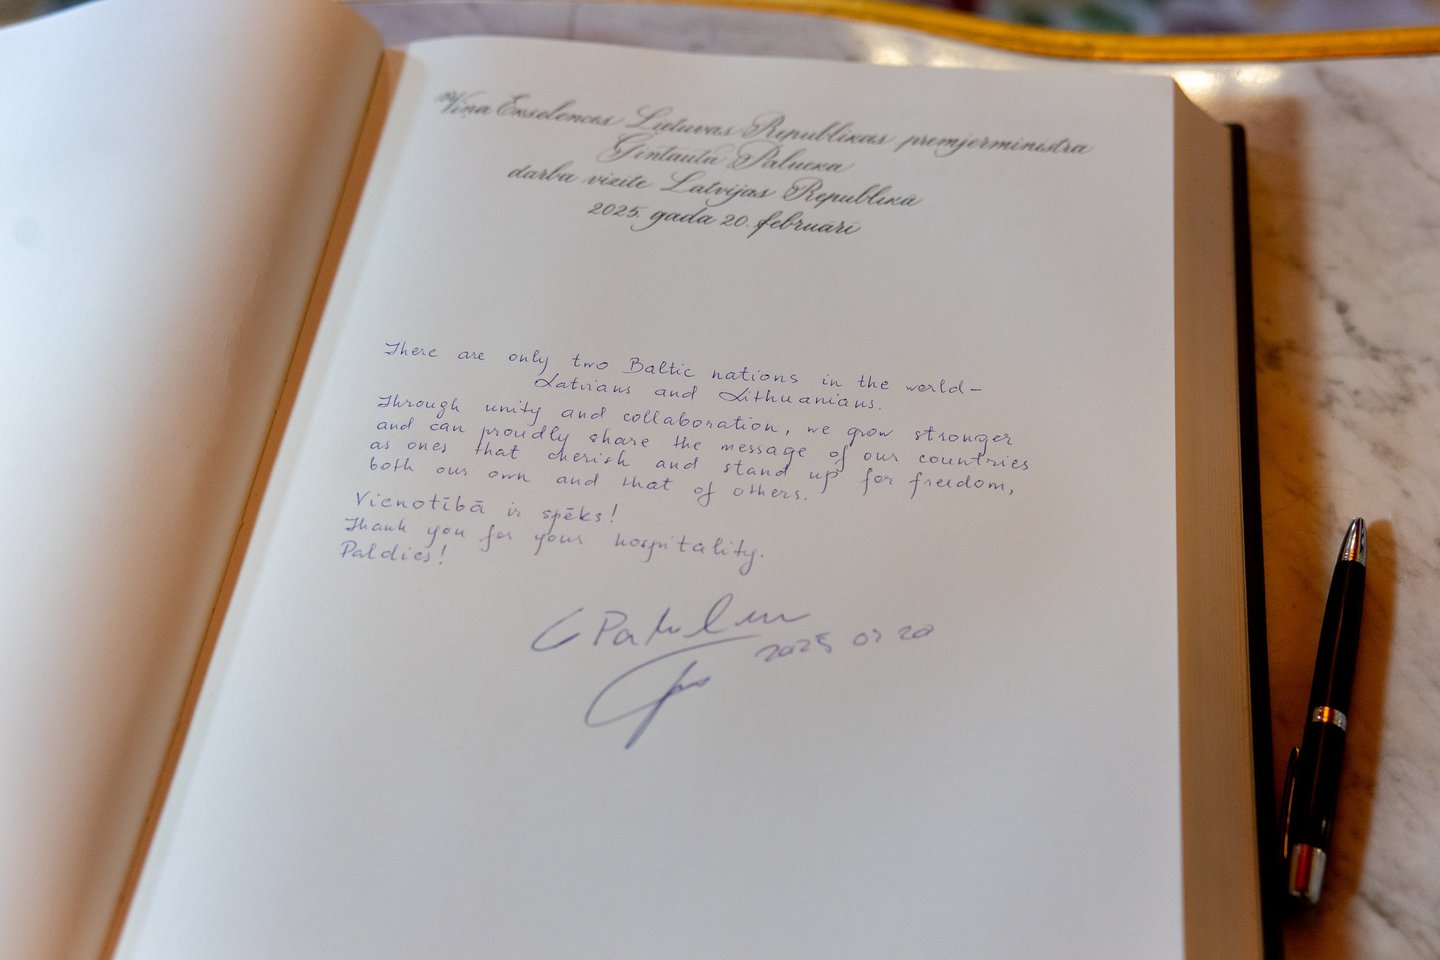 Viņa Ekselences Lietuvas Republikas premjerministra
Gintauta Palucka
darba vizīte Latvijas Republikā
2025. gada 20. februārī
There are only two Baltic nations in the world–
Latvians and Lithuanians.
Through unity and collaboration, we grow stronger
and can proudly share the message of our countries
as ones that cherish and stand up for freedom,
both our own and that of others.
Vienotībā ir spēks!
Thank you for your hospitality.
Paldies!
2025 02 20